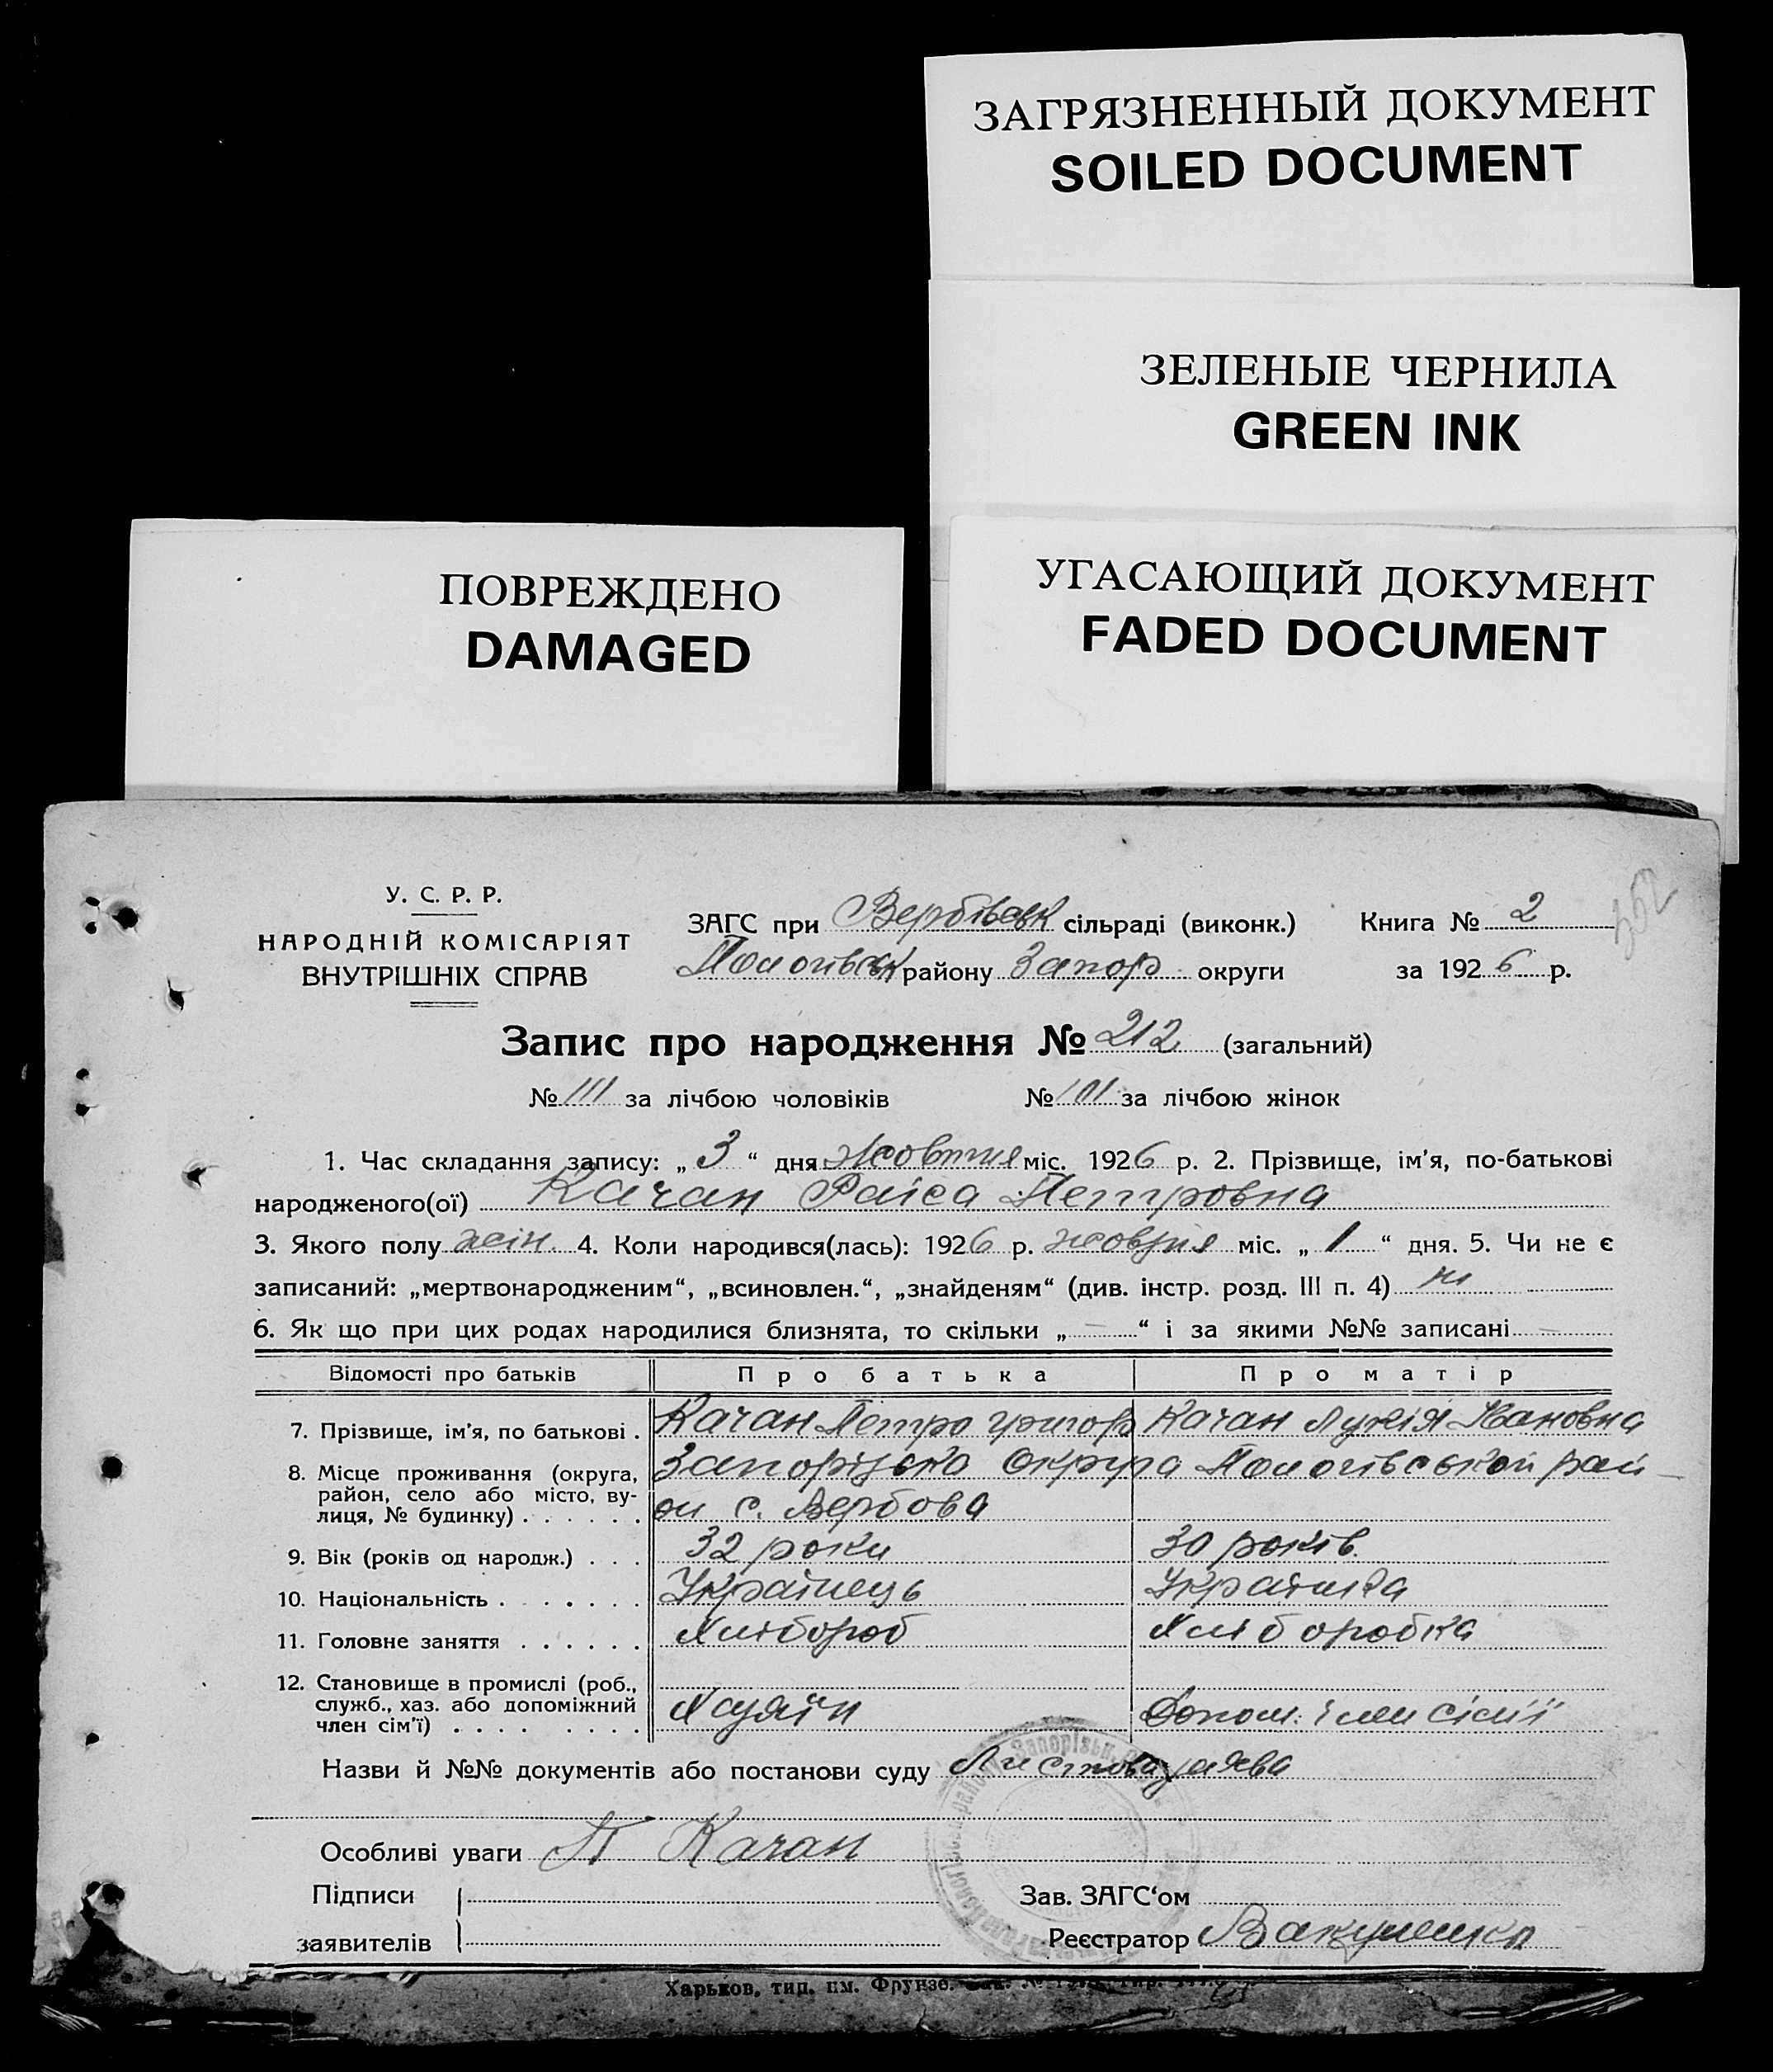 ЗАГРЯЗНЕННЫЙ ДОКУМЕНТ
SOILED DOCUMENT
ЗЕЛЕНЫЕ ЧЕРНИЛА
GREEN INK
ПОВРЕЖДЕНО
DAMAGED
УГАСАЮЩИЙ ДОКУМЕНТ
FADED DOCUMENT
352
У. С. Р. Р.
НАРОДНІЙ КОМІСАРІЯТ
ВНУТРІШНІХ СПРАВ
ЗАГС при Вербівськ сільраді (виконк.) Книга № 2
Пологівськ району Запор округи за 1926 р.
Запис про народження № 212 (загальний)
№ 111 за лічбою чоловіків № 101 за лічбою жінок
1. Час складання запису: „ 3 “ дня Жовтня міс. 1926 р. 2. Прізвище, ім’я, по-батькові
народженого(ої) Качан Раіса Петровна
3. Якого полу жін. 4. Коли народився(лась): 1926 р. жовтня міс. „ 1 “ дня. 5. Чи не є
записаний: „мертвонародженим“, „всиновлен.“, „знайденям“ (див. інстр. розд. III п. 4) ні
6. Як що при цих родах народилися близнята, то скільки „ — “ і за якими №№ записані —
Відомості про батьків Про батька Про матір
7. Прізвище, ім’я, по батькові . Качан Петро Григор Качан Лукія Івановна
8. Місце проживання (округа, район, село або місто, вулиця, № будинку) . . . . . . Запорізька Округа Пологівський рай-
он с. Вербова
9. Вік (років од народж.) . . . 32 роки 30 років.
10. Національність . . . . . . . Українець Українка
11. Головне заняття . . . . . . Хлібороб Хліборобка
12. Становище в промислі (роб., служб., хаз. або допоміжний член сім’ї) . . . . . . . . Хазяїн Допом. член сім'ї
Назви й №№ документів або постанови суду заява
Особливі уваги П Качан
Підписи
заявителів
Зав. ЗАГС‘ом
Реєстратор Вакуленко
Харьков, тип. им. Фрунзе.